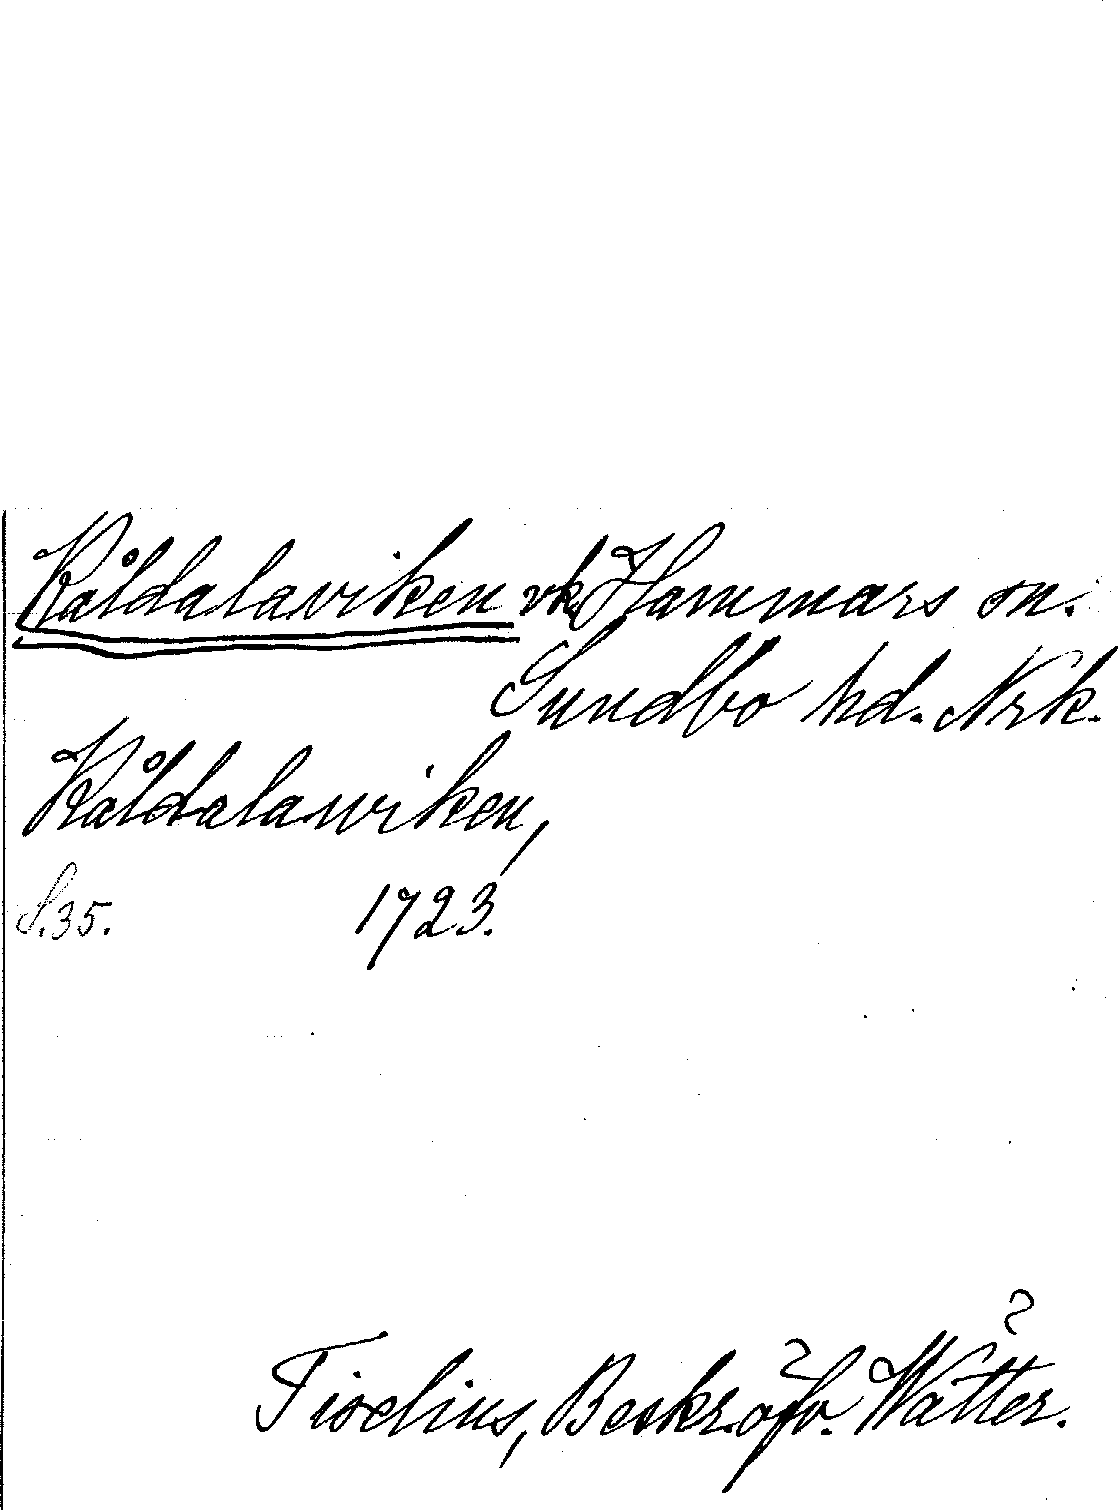 Kåldalaviken vk, Hammars sn.
Sundbo hd. Nrk.
Kåldalawiken,
S. 35. 1723.
Tiselius, Beskr. öfv. Wätter.